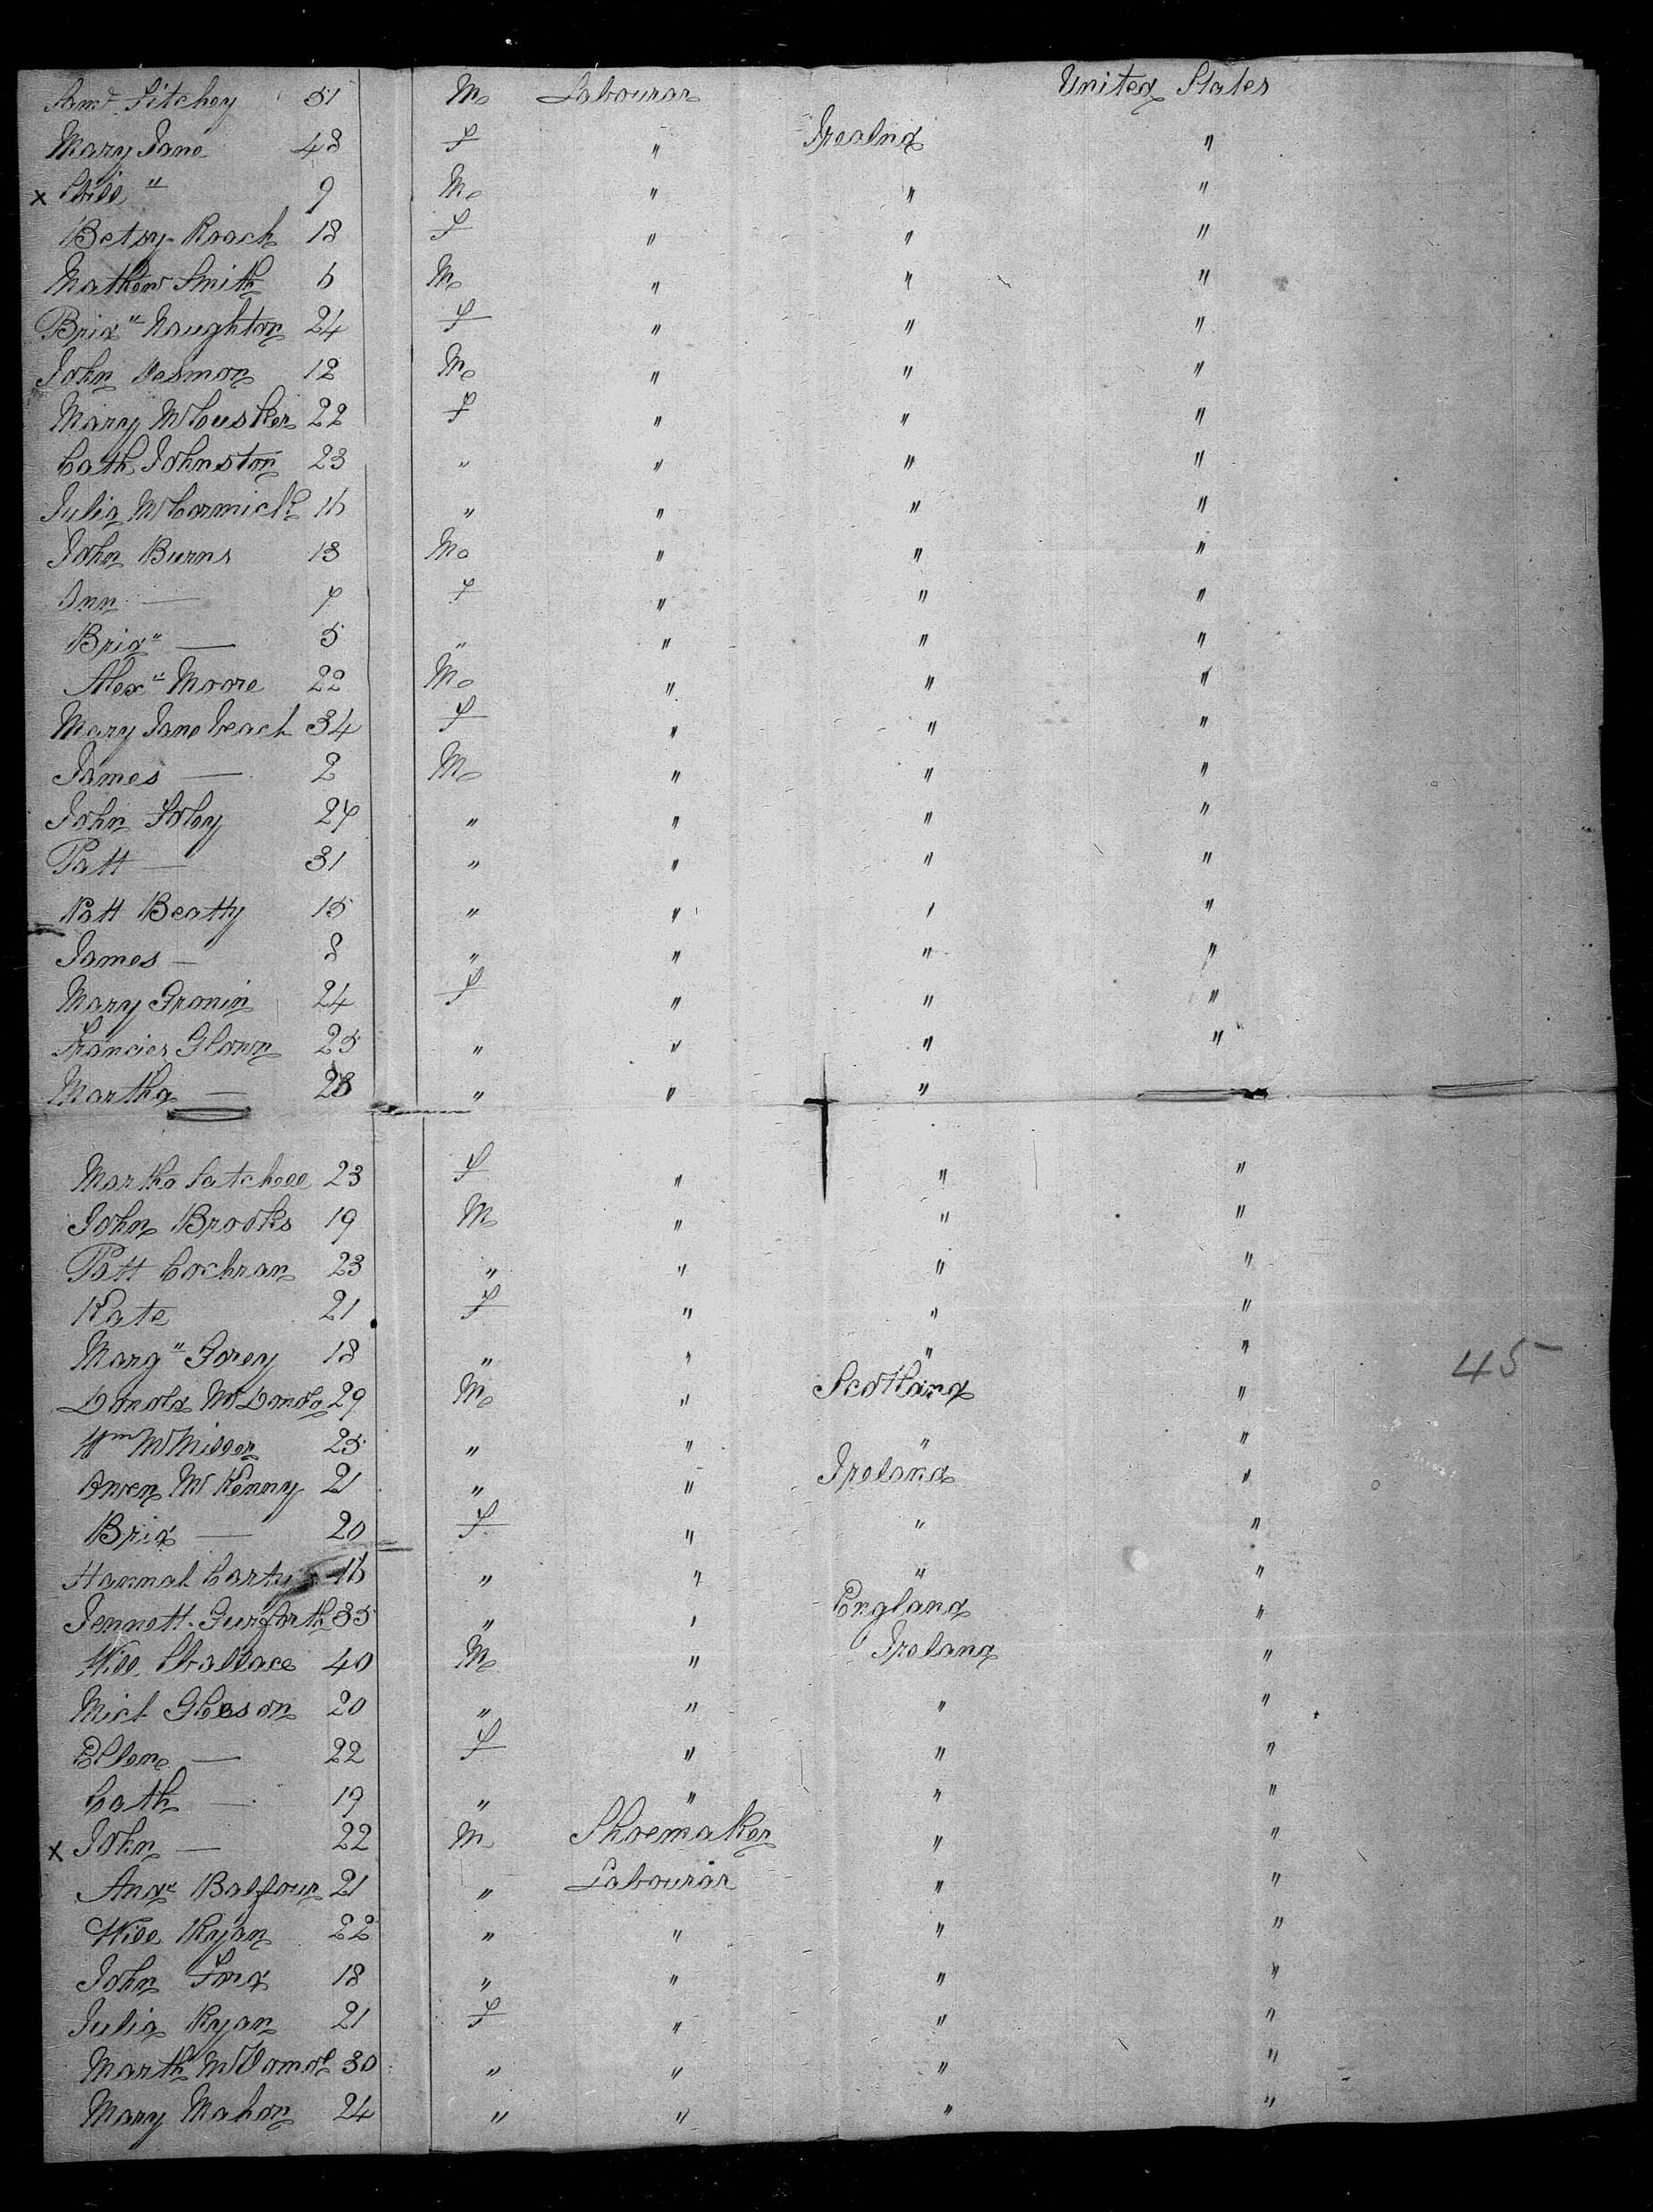 Saml Fitchey 51 M Labourar United States
Mary Jane 48 f " Irealnd "
x Will " 9 M " " "
Betsy Roach 18 f " " "
Mathew Smith 6 M " " "
Brid" Naughton 24 f " " "
John Desmon 12 M " " "
Mary McCusker 22 f " " "
Cath Johnston 23 " " " "
Julia McCormick 16 " " " "
John Burns 13 M " " "
Ann — 7 f " " "
Brid" — 5 " " " "
Alex" Moore 22 M " " "
Mary Jane Leach 34 f " " "
James — 2 M " " "
John Foley 24 " " " "
Patt — 31 " " " "
Patt Beatty 15 " " " "
James — 8 " " " "
Mary Gronin 24 f " " "
Francies Glown 25 " " " "
Martha — 28 " " "
Martha Satchell 23 f " " "
John Brooks 19 M " " "
Patt Cochran 23 " " " "
Kate 21 f " " "
Marg" Gorey 18 " " " "
Donold McDonold 29 M " Scotland "
Wm McMiller 25 " " " "
Owen McKenny 21 " " Ireland "
Brid — 20 f " " "
Hannah Carty 16 " " " "
Jennett Gurforth 35 " " England "
Will Wallace 40 M " Ireland "
Mich Gleeson 20 " " " "
Ellen — 22 f " " "
Cath — 19 " " " "
x John — 22 M Shoemaker " "
Andw Balfour 21 " Labourar " "
Will Ryan 22 " " " "
John Ford 18 " " " "
Julia Ryan 21 f " " "
Marth McDonol 30 " " " "
Mary Mahon 24 " " " "
45